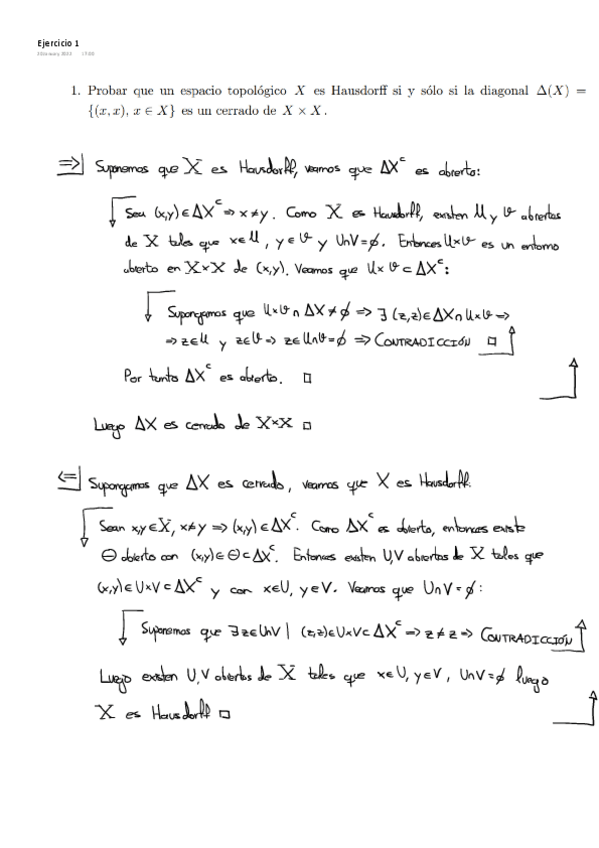 Ejercicio 1
1. Probar que un espacio topológico X es Hausdorff si y sólo si la diagonal Δ(X) =
{(x, x), x ∈ X} es un cerrado de X × X.
⇒| Suponemos que X es Hausdorff, veamos que ΔX^c es abierto:
Sea (x,y)∈ΔX^c ⇒ x≠y. Como X es Hausdorff, existen U y V abiertos
de X tales que x∈U, y∈V y U∩V=∅. Entonces U×V es un entorno
abierto en X×X de (x,y). Veamos que U×V⊂ΔX^c:
Supongamos que U×V∩ΔX≠∅ ⇒ ∃(z,z)∈ΔX∩U×V ⇒
⇒ z∈U y z∈V ⇒ z∈U∩V=∅ ⇒ CONTRADICCIÓN □
Por tanto ΔX^c es abierto. □
Luego ΔX es cerrado de X×X □
⇐| Supongamos que ΔX es cerrado, veamos que X es Hausdorff.
Sean x,y∈X, x≠y ⇒ (x,y)∈ΔX^c. Como ΔX^c es abierto, entonces existe
Θ abierto con (x,y)∈Θ⊂ΔX^c. Entonces existen U,V abiertos de X tales que
(x,y)∈U×V⊂ΔX^c y con x∈U, y∈V. Veamos que U∩V=∅:
Suponemos que ∃z∈U∩V | (z,z)∈U×V⊂ΔX^c ⇒ z≠z ⇒ CONTRADICCIÓN
Luego existen U,V abiertos de X tales que x∈U, y∈V, U∩V=∅ luego
X es Hausdorff □